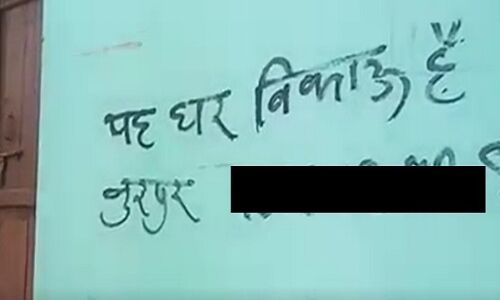 यह घर बिकाऊ हैं
नुरपुर